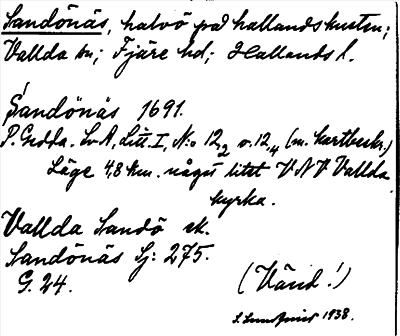 Sandönäs, halvö på hallandskusten;
Vallda sn; Fjäre hd; Hallands l.
Sandönäs 1691.
P. Gedda. Lv A, Litt. I, N:o 12,2 o. 12,4 (m. kartbeskr.)
Läge 4,8 km. något litet V N V Vallda
kyrka.
Vallda Sandö ek.
Sandönäs Sj: 275.
G. 24.
(Värd!)
S. Lundquist 1938.